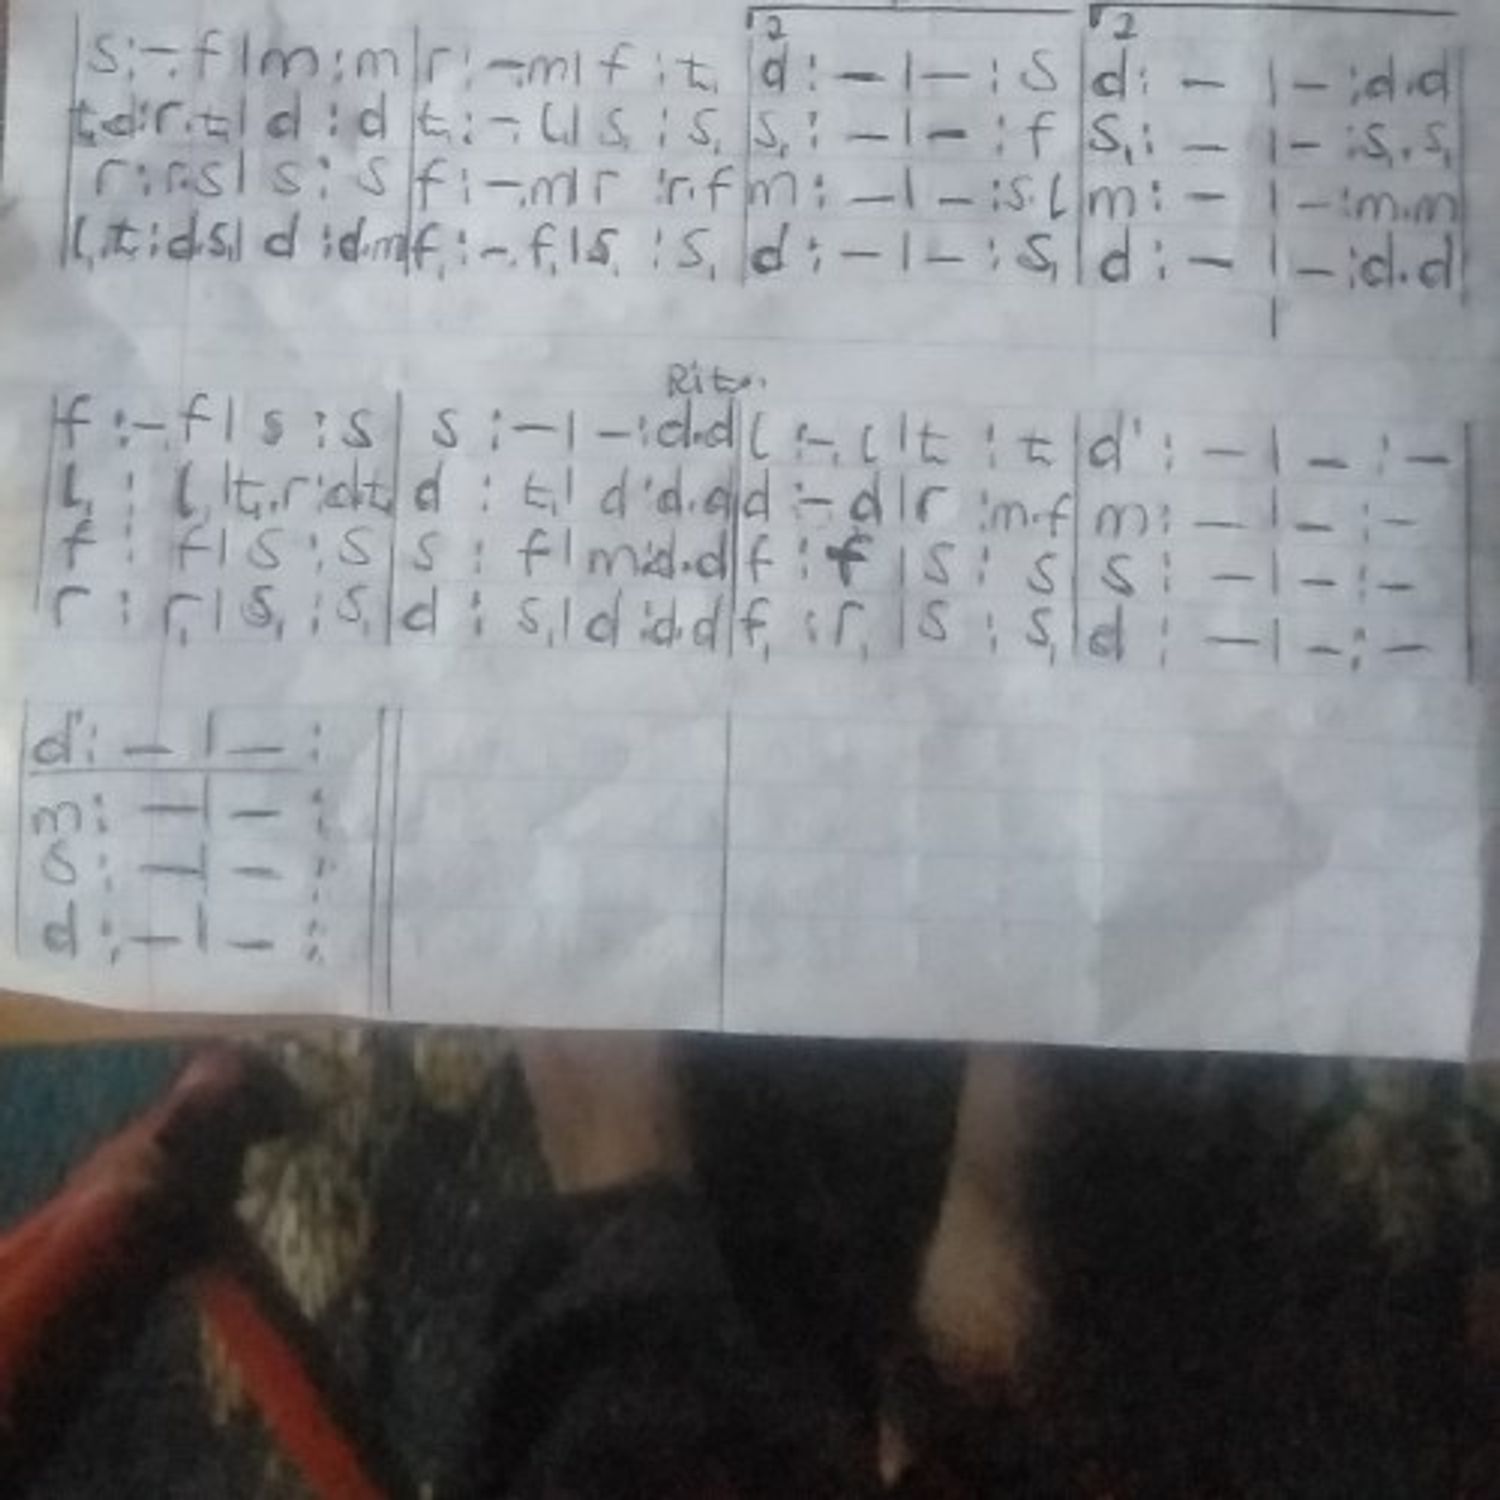 2 2
|s:-.f|m:m|r:-.m|f:t,|d:-|-:s|d:-|-:d.d|
t,.d:r.t,|d:d|t,:-.l,|s,:s,|s,:-|-:f|s,:-|-:s,.s,|
r:r.s|s:s|f:-.m|r:r.f|m:-|-:s.l|m:-|-:m.m|
|l,.t,:d.s,|d:d.m|f,:-.f,|s,:s,|d:-|-:s,|d:-|-:d.d|
Rit..
|f:-.f|s:s|s:-|-:d.d|l:-.l|t:t|d':-|-:-|
|l,:l,|t,.r:d.t,|d:t,|d:d.d|d:-.d|r:m.f|m:-|-:-|
|f:f|s:s|s:f|m:d.d|f:f|s:s|s:-|-:-|
|r:r,|s,:s,|d:s,|d:d.d|f,:r,|s:s,|d:-|-:-|
|d':-|-:||
|m:-|-:||
|s:-|-:||
|d:-|-:||